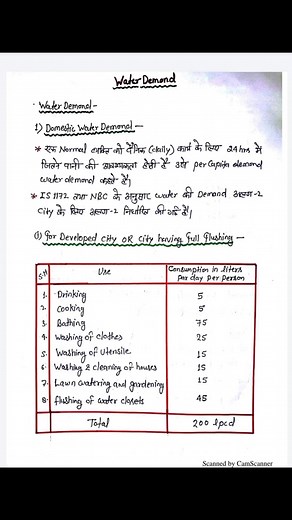 Water Demand
Water Demand-
1) Domestic Water Demand —
* एक Normal व्यक्ति को दैनिक (daily) कार्य के लिए 24hrs में
जितने पानी की आवश्यकता होती है उसे per Capita demand
water demand कहते है।
* IS 1172 तथा NBC के अनुसार water की Demand अलग-2
City के लिए अलग-2 निर्धारित की गई है।
(1) for Developed City OR City having full flushing —
S.N Use Consumption in liters
per day per person
1. Drinking 5
2. Cooking 5
3. Bathing 75
4. Washing of clothes 25
5. Washing of Utensils 15
6. Washing & cleaning of houses 15
7. Lawn watering and gardening 15
8. flushing of water closets 45
Total 200 lpcd
Scanned by CamScanner